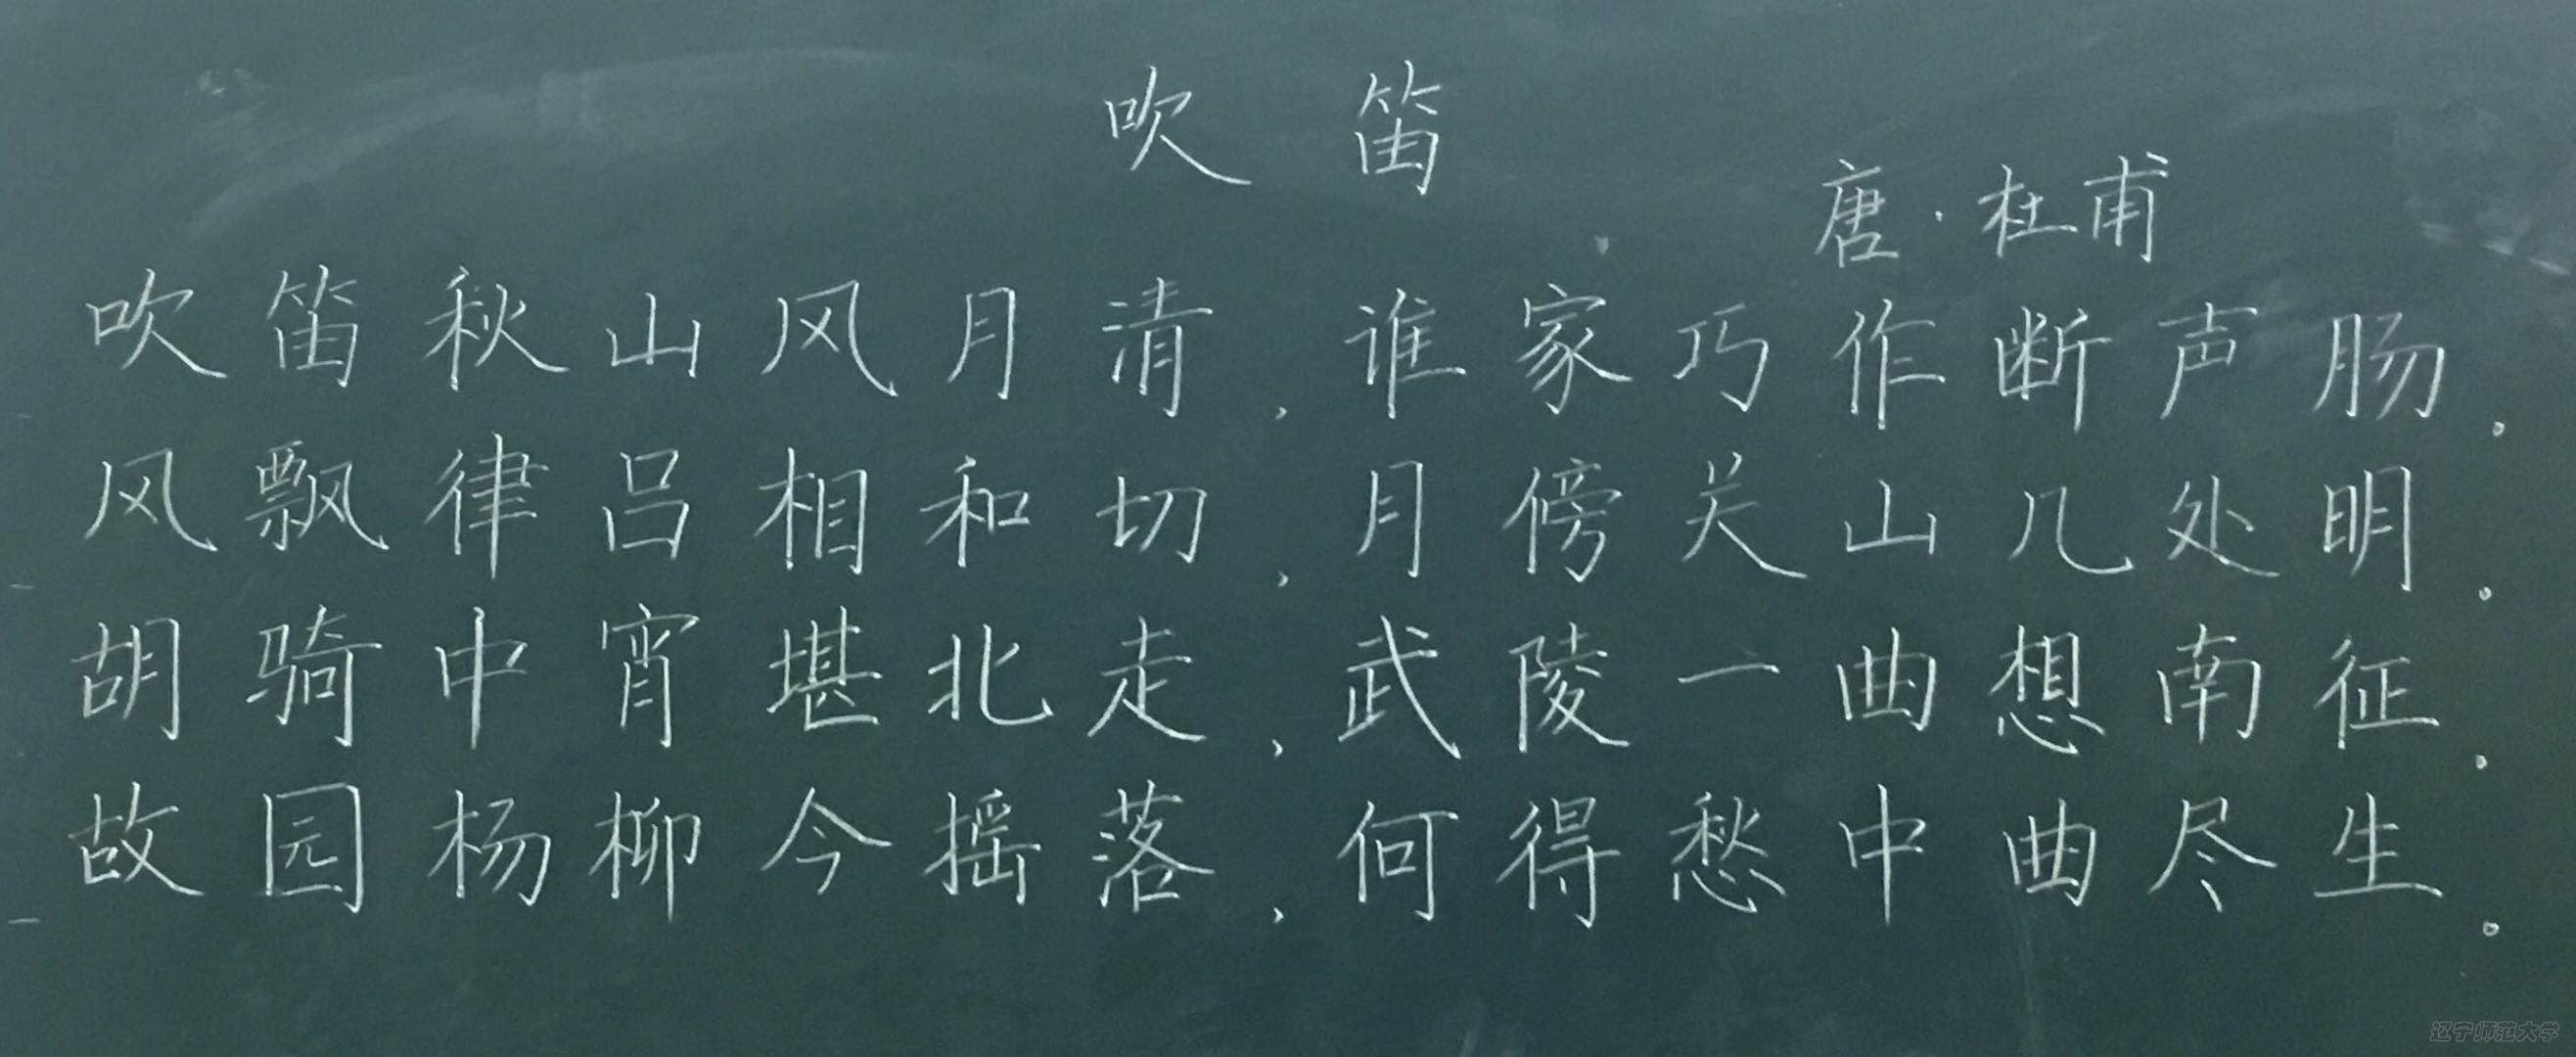 吹笛
唐·杜甫
吹笛秋山风月清，谁家巧作断声肠。
风飘律吕相和切，月傍关山几处明。
胡骑中宵堪北走，武陵一曲想南征。
故园杨柳今摇落，何得愁中曲尽生。
辽宁师范大学